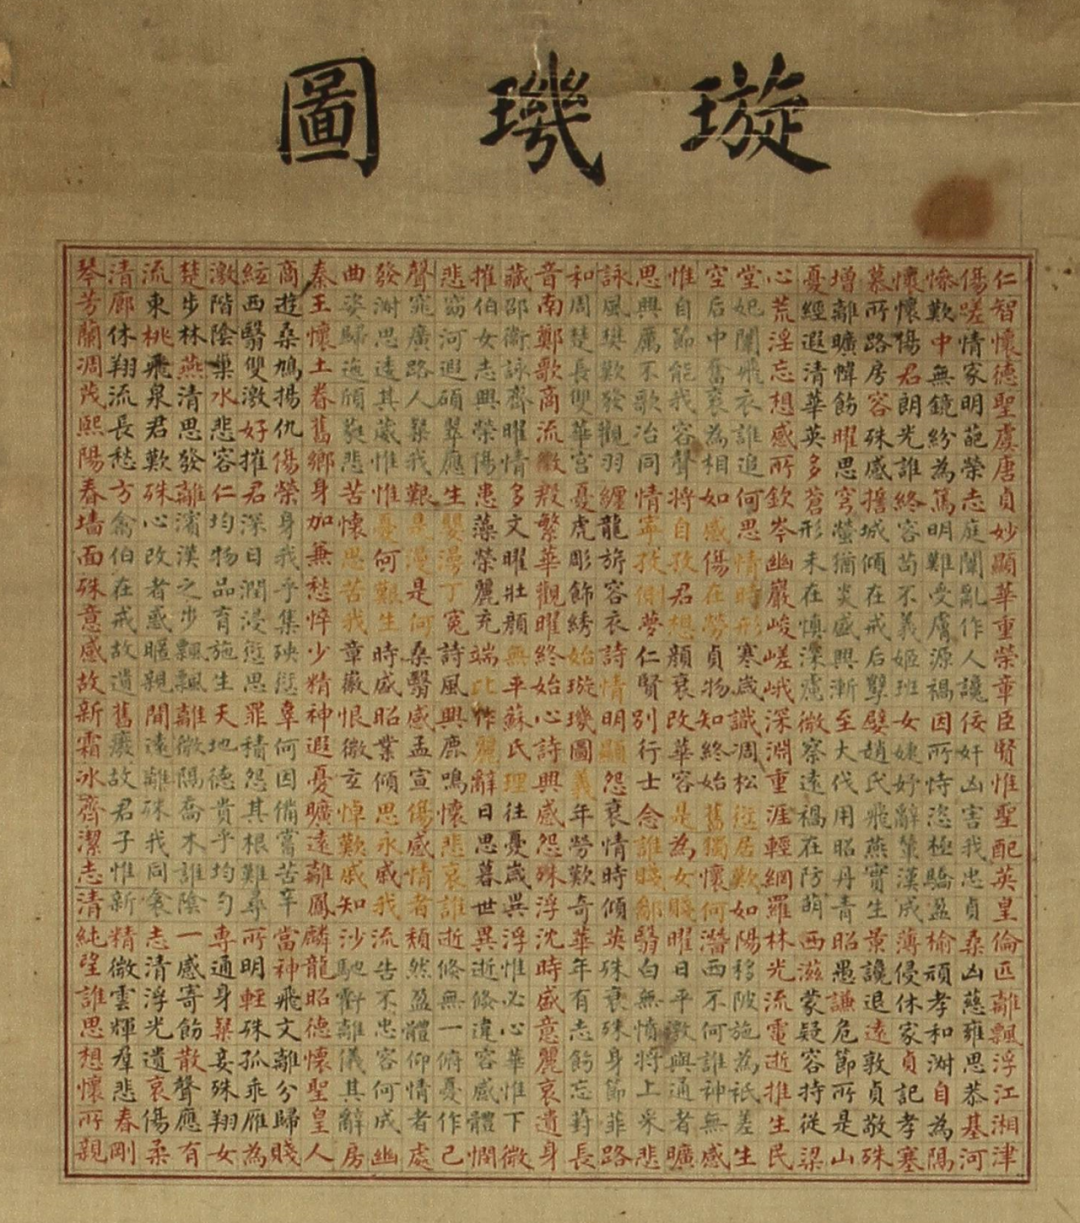 璇璣圖
仁智懷德聖虞唐貞妙顯華重榮章臣賢惟聖配英皇倫匹離飄浮江湘津
傷嗟情家明葩榮志庭闈亂作人讒佞奸凶害我忠貞桑凶慈雍思恭基河
慘歎中無鏡紛為篤明難受膚源禍因所恃恣極驕盈榆頑孝和淑自為隔
懷懷傷君朗光誰終容苟不義姬班女婕妤辭輦漢成薄侵休家貞記孝塞
慕所路房容殊感擔城傾在戒后孽嬖趙氏飛燕實生景讒退遠敦貞敬殊
增離曠幃飾曜思穹螢猶炎盛興漸至大伐用昭丹青昭愚謙危節所是山
憂經遐清華英多蒼形未在慎深慮微察遠禍在防萌西滋蒙疑容持從梁
心荒淫忘想感所欽岑幽巖峻嵯峨深淵重涯輕網羅林光流電逝推生民
堂妃闈飛衣誰追何思情時形寒歲識凋松愆居歎如陽移陂施為祇差生
空后中奮袞為相如感傷在勞貞物知終始舊獨懷何潛西不何誰神無感
惟自節能我容聲將自孜君想顏衰改華容是為女賤曜日平徵興通者曠
思興厲不歌冶同情寧孜側夢仁賢別行士念誰賤鄙翳白無憤將上采悲
詠風樊歎發觀羽纏龍旂容衣詩情明顯怨衰情時傾英殊衰殊身節菲路
和周楚長雙華宮憂虎彫飾綉始璇璣圖義年勞歎奇華年有志飾忘葑長
音南鄭歌商流徵殷繁華觀曜終始心詩興感怨殊浮沈時盛意麗哀遺身
藏邵衛詠齊曜情多文曜壯顏無平蘇氏理往憂歲異浮惟必心華惟下微
摧伯女志興榮傷患藻榮麗充端此作麗辭日思暮世異逝倏違容感體憫
悲窈河遐碩翠應生嬰漫丁冤詩風興鹿鳴懷悲哀誰逝倏無一俯憂作己
聲窕廣路人粲我艱是漫是何桑翳感孟宣傷感情者頹然盈體仰情者處
發淑思逶其葳惟惟憂何艱生時盛昭業傾思永戚我流告不忠容何成幽
曲姿歸迤頎蕤悲苦懷思苦我章徽恨微玄悼歎戚知沙馳虧離儀其辭房
秦王懷土眷舊鄉身加兼愁悴少精神遐憂曠遠離鳳麟龍昭德懷聖皇人
商遊桑鳩揚仇傷榮身我乎集殃愆辜何因備嘗苦辛當神飛文離分歸賤
絃西翳雙激好摧君深日潤浸愆思罪積怨其根難尋所明輕殊孤乖雁為
激階陰巢水悲容仁均物品育施生天地德貴平均勻專通身粲妾殊翔女
楚步林燕清思發離濱漢之步飄飄離微隔喬木誰陰一感寄飾散聲應有
流東桃飛泉君歎殊心改者惑暱親間遠離殊我同衾志清浮光遺哀傷柔
清廊休翔流長愁方禽伯在戒故遺舊廢故君子惟新精微雲輝羣悲春剛
琴芳蘭凋茂熙陽春墻面殊意感故新霜冰齊潔志清純望誰思想懷所親